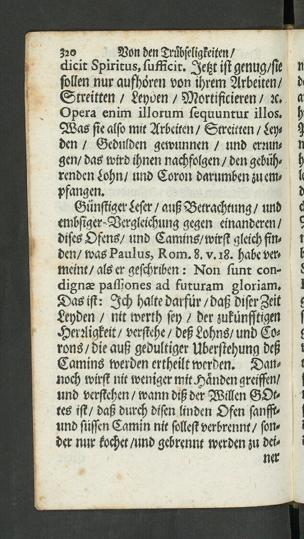 320 Von den Trübseligkeiten/
dicit Spiritus, sufficit. Jetzt ist genug/sie
sollen nur aufhören von ihrem Arbeiten/
Streitten / Leyden / Mortificieren / ꝛc.
Opera enim illorum sequuntur illos.
Was sie also mit Arbeiten / Streitten / Ley-
den / Gedulden gewunnen / und errun-
gen/das wird ihnen nachfolgen/den gebüh-
renden Lohn/ und Coron darumben zu em-
pfangen.
Günstiger Leser / auß Betrachtung / und
embsiger-Vergleichung gegen einanderen/
dises Ofens/ und Camins/wirst gleich fin-
den/ was Paulus, Rom. 8. v. 18. habe ver-
meint/als er geschriben: Non sunt con-
dignæ passiones ad futuram gloriam.
Das ist: Ich halte darfür/daß diser Zeit
Leyden / nit werth sey / der zukünfftigen
Herzligkeit / verstehe / deß Lohns/ und Co-
rons/ die auß gedultiger Uberstehung deß
Camins werden ertheilt werden. Dan-
noch wirst nit weniger mit Händen greiffen/
und verstehen/ wann diß der Willen GOt-
tes ist/ daß durch disen linden Ofen sanfft-
und süssen Camin nit sollest verbrennt/ son-
der nur kochet/und gebrennt werden zu dei-
ner